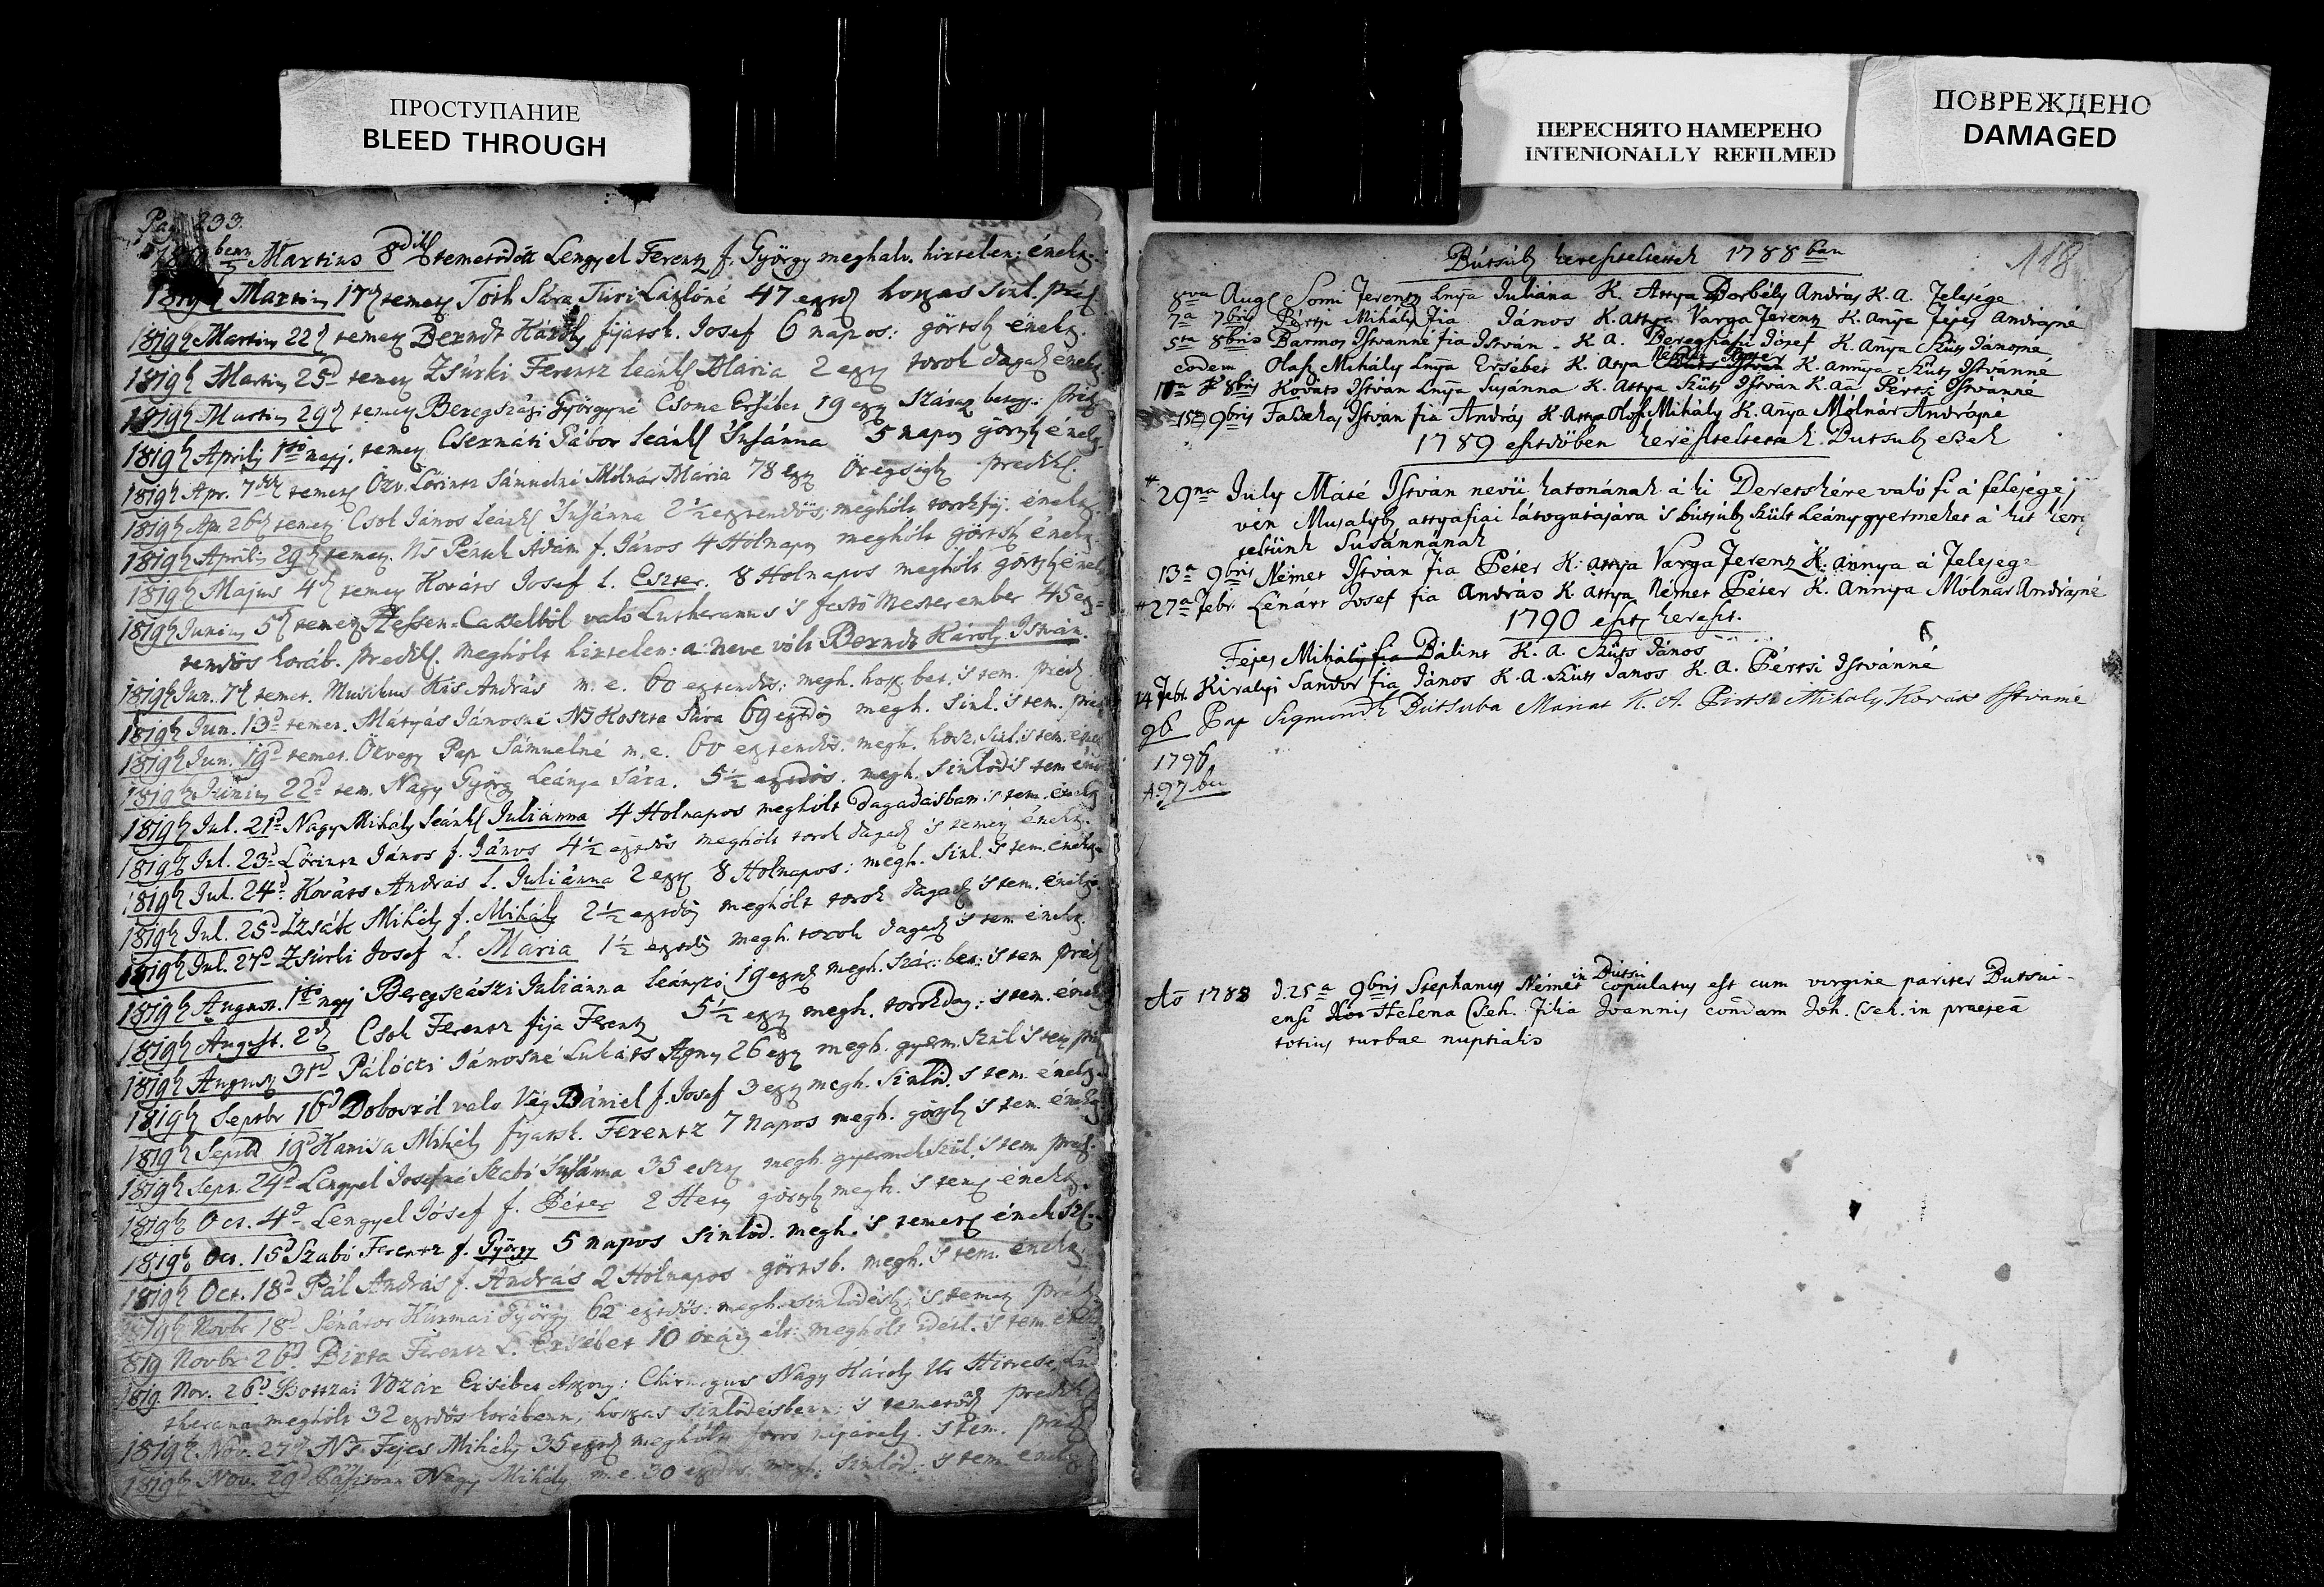 ПРОСТУПАНИЕ
BLEED THROUGH
ПЕРЕСНЯТО НАМЕРЕНО
INTENIONALLY REFILMED
ПОВРЕЖДЕНО
DAMAGED
Pag. 233.
Martius 8 temetödött Lengyel Ferentz f. György meghalv. hirtelen: énekz.
1819b Martius 17d temet Tóth Sára Turi Lászlóné 47 hoszas sinl. préd
1819b Martius 22d temet Berndt Károly fijatsk. Josef 6 napos: görtsb énekz.
1819b Martius 25d temet Zsúrki Ferentz leánk Mária 2 torok dagad énekz
1819b Martius 29d temet Beregszászi Györgyné Csoma Ersébet 19 száraz beteg. préd
1819b Aprilis 1ső napj. temet Csernáti Gábor leánk Susánna 5 napos görtsb énekz
1819b Apr. 7dik temet Özv. Lörintz Sámuelné Molnár Mária 78 Öregségb predik.
1819b Ap. 26d temet Csok János leánk Susánna 2½ esztendös, meghólt torokfáj. énekz.
1819b Aprilis 29d temet. Ns Pénzek Adám f. János 4 Holnapos meghólt görtsb énekz
1819b Majus 4d temet Kováts Josef l. Eszter. 8 Holnapos meghólt görtsb énekz
1819b Junius 5d temet Hessen-Casselböl való Lutheranus 's festö Mesterember 45 esz=
tendös koráb. predik. meghólt hirtelen: a' neve vólt Berndt Károly István.
1819b Jun. 7d temet. Musikus Kis András m. e. 60 esztendös: megh. hosz bet. 's tem. préd
1819b Jun. 13d temet. Mátyás Jánosné Ns Koszta Sára 69 esztdös megh. sinl. 's tem. préd
1819b Jun. 19d temet. Özvegy Pap Sámuelné m. e. 60 esztendös. megh. hosz. sinl. 's tem. énekz
1819b Junius 22d tem. Nagy Györg Leánya Sára. 5½ esztdös. megh. sinlödés tem. énekz
1819b Jul. 21d Nagy Mihály leánk Juliánna 4 Holnapos meghólt dagadásban 's tem. énekz
1819b Jul. 23d Lörintz János f. János 4½ esztdös meghólt torok dagad 's temet énekz.
1819b Jul. 24d Kováts András l. Juliánna 2 8 Holnapos: megh. sinl. 's tem. énekz.
1819b Jul. 25d Izsák Mihály f. Mihály 2½ esztdös meghólt torok dagad 's tem. énekz
1819b Jul. 27d Zsúrki Josef l. Maria 1½ esztdös megh. torok dagad 's tem énekz.
1819b August. 1ső napj Beregszászi Juliánna leánzó 19 megh. szár: bet: 's tem préd
1819b August. 2d Csok Ferentz fija Ferentz 5½ megh. torokdag: 's tem. énekz
1819b August 31d Pálóczi Jánosné Lukáts Agnes 26 megh. gyerm. szül 's tem préd
1819b Septbr 16d Dobosról való Vég Dániel f. Josef 3 megh. Sinlöd. 's tem. énekz
1819b Septb 19d Hanisa Mihály fijatsk. Ferentz 7 napos megh. görtsb 's tem énekz
1819b Sept. 24d Lengyel Josefné Szabó Susánna 35 megh. gyermekszül. 's tem préd.
1819b Oct. 4d Lengyel Jósef f. Péter 2 Hetes görtsb megh. 's temet énekz.
1819b Oct. 15d Szabó Ferentz f. György 5 napos sinlöd. megh. 's temet éneksz.
1819b Oct. 18d Pál András f. András 2 Holnapos görtsb. megh. 's tem. énekz.
1819b Novbr 18d Senátor Kuzmai György 62 esztdös: megh. sinlödésb, 's temet préd
819 Novbr 26d. Birta Ferentz L. Ersébet 10 óráig élt: meghólt 's tem. énekz
1819. Nov. 26d Vozár Ersébet Aszony: Chirurgus Nagy Károly Ur Hitvese, Lu-
therana meghólt 32 esztdös korábann, hoszas sinlödésbenn: 's temetöd predik
1819b Nov. 27d Ns Fejes Mihály 35 meghólt forró 's tem. préd
1819b Nov. 29d Nagy Mihály m. e. 30 esztdös megh. sinlöd. 's tem. énekz
118
Bútsúb kereszteltettek 1788ban
8va Aug Somi Ferentz Lnya Juliána K. Attya Borbély András K. A. Felesége
7a 7bris Pértsi Mihály fia János K. attya Varga Ferentz K. anya Fejes Andrásné
5ta 8bris Barmos Istvánné fia István - K. A. Beregszászi Jósef K. Anya Szüts Jánosné,
eodem Olasz Mihály Lnya Ersébet K. Atya Német Péter K. Annya Szüts Istvánné
10a 8bris Kováts István Lnya Susánna K. Attya Szüts István K. aa Pértsi Istvánné
15 9bris Fazekas István fia András K. Attya Olasz Mihály K. anya Mólnár Andrásne
1789 esztdöben kereszteltettek Butsub ezek
29na July Máté István nevü katonának á ki Deretskére való fi á feleségej
vén Musalyb attyafiai látogatására 's bútsúb szült Leány gyermeket á kit keresz
teltünk Susánnának
13a 9bris Német István fia Péter K. attya Varga Ferentz K. annya á Felesege
27a Febr. Lénárt Josef fia András K. attya Német Péter K. Annya Mólnár Andrásné
1790 eszt kereszt.
Fejes Mihály fia Bálint K. A. Szüts János
14 Febr. Királyi Sandor fia János K. A. Szüts Janos K. A. Pértsi Istvánné
96 Pap Sigmondk Butsuba Mariat K. A. Pirtsi Mihaly, Kovats Istvanne
1796
A. 97 ben
Ao 1788 d. 25a 9bris Stephanus Német in Bútsu copulatus est cum virgine pariter Butsui-
ensi Helena Cseh. Filia Joannis condam Joh. Cseh. in praesea
totius turbae nuptialis